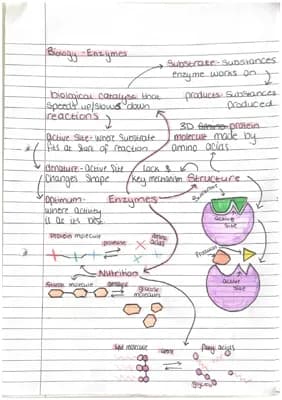 Biology - Enzymes
Substrate - Substances
enzyme works on
biological catalyse that
Speeds up/slows down
reactions
products: Substances
produced
3D protein
molecule made by
amino acids
Active Site - What Substrate
fits at Start of reaction
denature - Active Site
Changes Shape
Lock &
Key mechanism
Structure
Optimum -
Where activity
is at its best
Enzymes
Substrate
Active
Site
Products
Active
Site
Protein molecule
protease
amino
acids
Nutrition
Starch molecule
glucose
molecules
lipid molecule
Fatty acids
glycerol